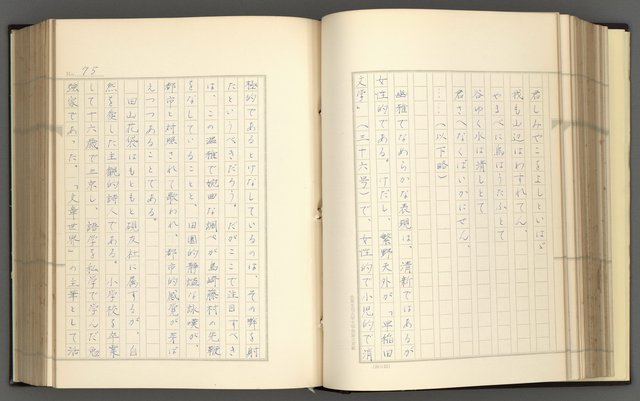 君しみやこをよしといはゞ
我も山辺はわすれてん、
やまべに鳥はうたふとて
谷ゆく水は清しとて
君さへなくばいかにせん。
……(以下略)
幽雅でなめらかな表現は、清新ではあるが
女性的である。けだし、繁野天外が「早稲田
文学」(三十六号)で、女性的で小児的で消
No. 75
極的であるとけなしているのは、その弊を射
たというべきだろう。だがここで注目すべき
は、この温雅で婉曲な調べが島崎藤村の先鞭
をなしていることと、田園的静謐な詠嘆が、
都市と対照されて歌われ、都市的感覚が芽ば
えつつあることである。
田山花袋はもともと硯友社に属するが、自
然を愛した主観的詩人である。小学校を卒業
して十六歳で上京し、語学を私学で学んだ勉
強家であった。「文章世界」の主筆として活